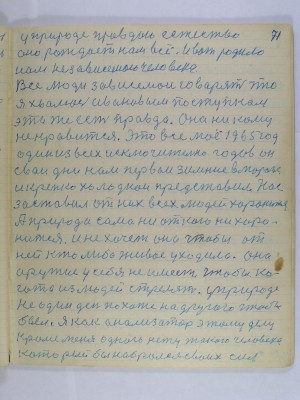 71
у природе правдою, естество
оно рождает нам всё. И вот родило
нам независимого человека.
Все люди зависимои говарят что
я хвалюсь Ивановым поступкам
эта же есть правда. Она ни кому
не нравится. Это все моё 1965 год
один из всех исключительно годов он
свои дни нам первои зимние с морозом
и крепко холодном представил. Нас
заставил от них всех людей хоранится
А природа сама ни от кого ни хоро-
нится. И не хочет она чтобы от
ней кто либо живое уходило. Она
аружие у себя не имеет, чтобы ко-
гото из людей стрелять. у природе
не один ден похоже на другого чтобы
был. Я как анализатор этому делу
кроме меня одного нету такого человека
который бы набрался своих сил